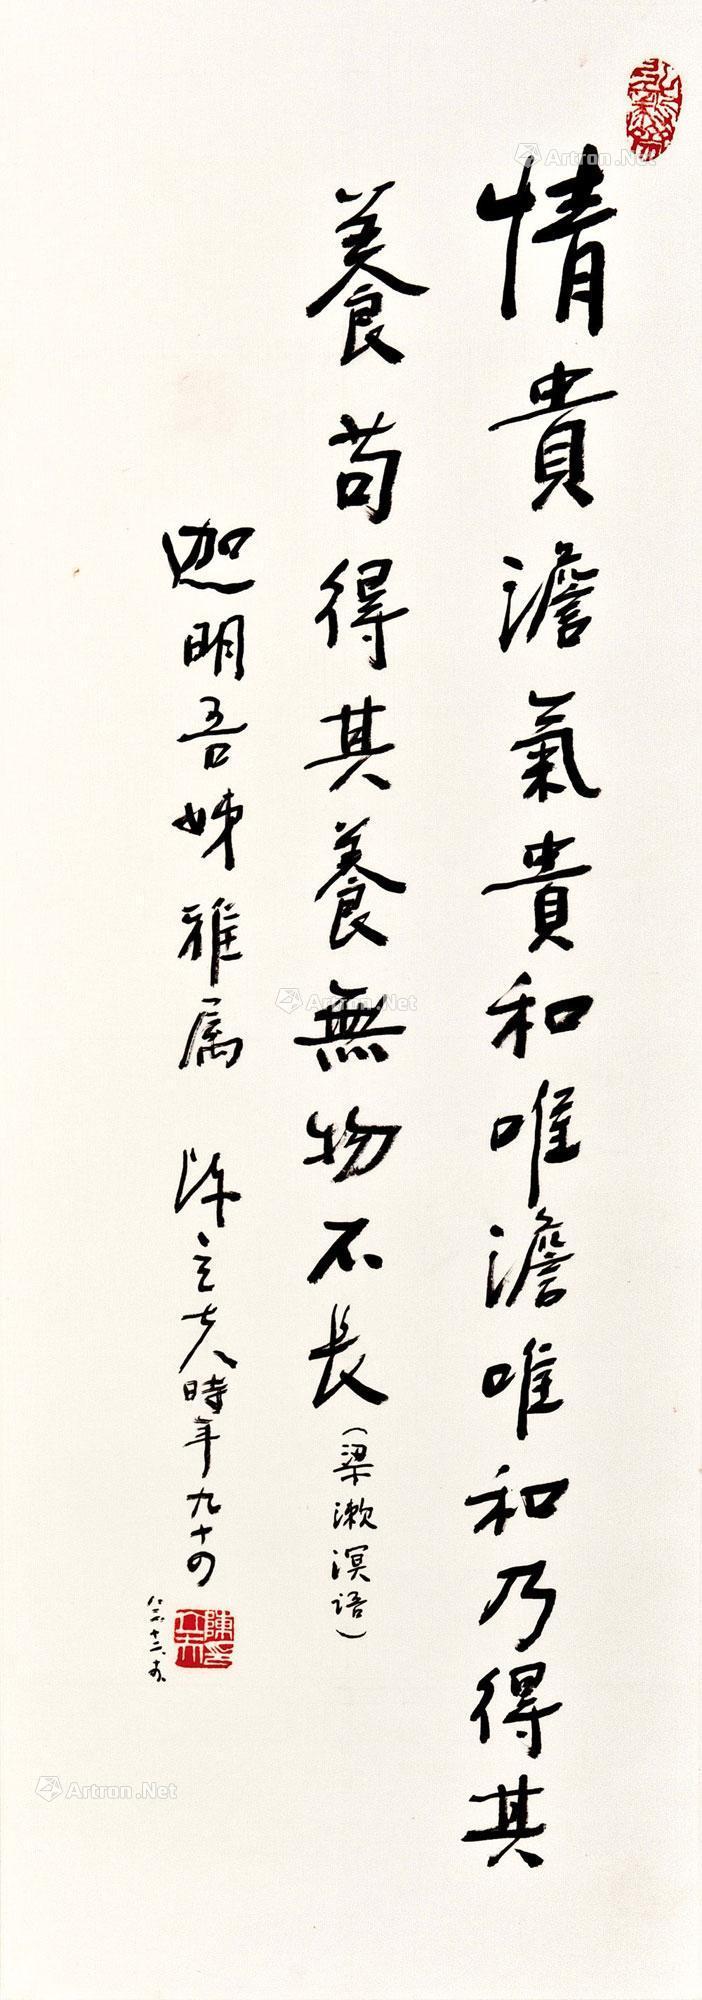 情貴澹氣貴和唯澹唯和乃得其
養苟得其養無物不長
（梁漱溟語）
迦明吾姊雅属 陳立夫時年九十四
陳立夫印
Artron.Net
Artron.Net
Artron.Net